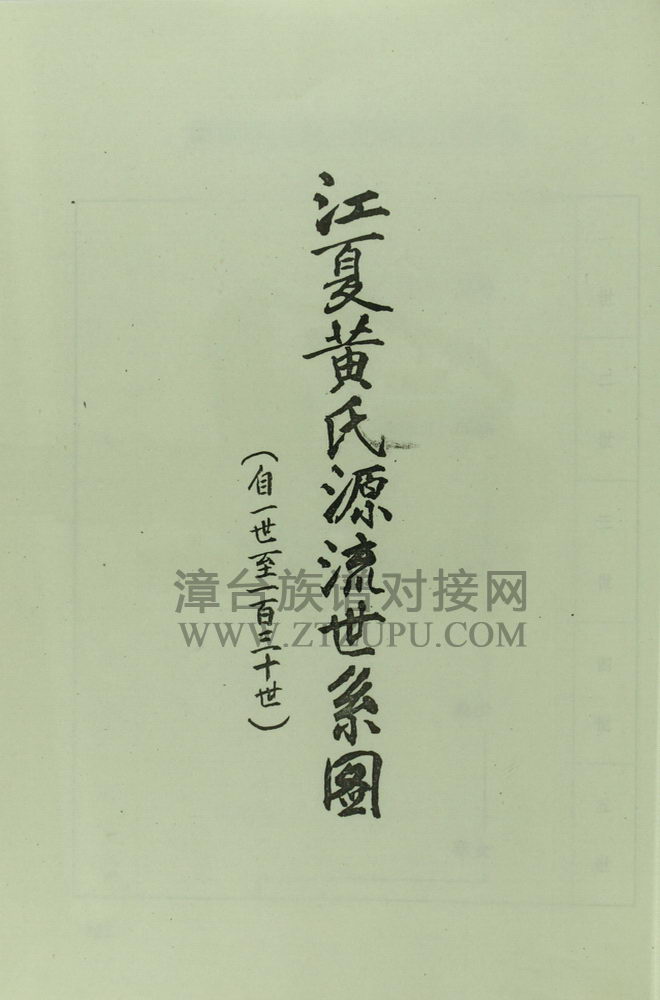 江夏黄氏源流世系图
(自一世至一百三十世)
漳台族谱对接网
WWW.ZTZUPU.COM